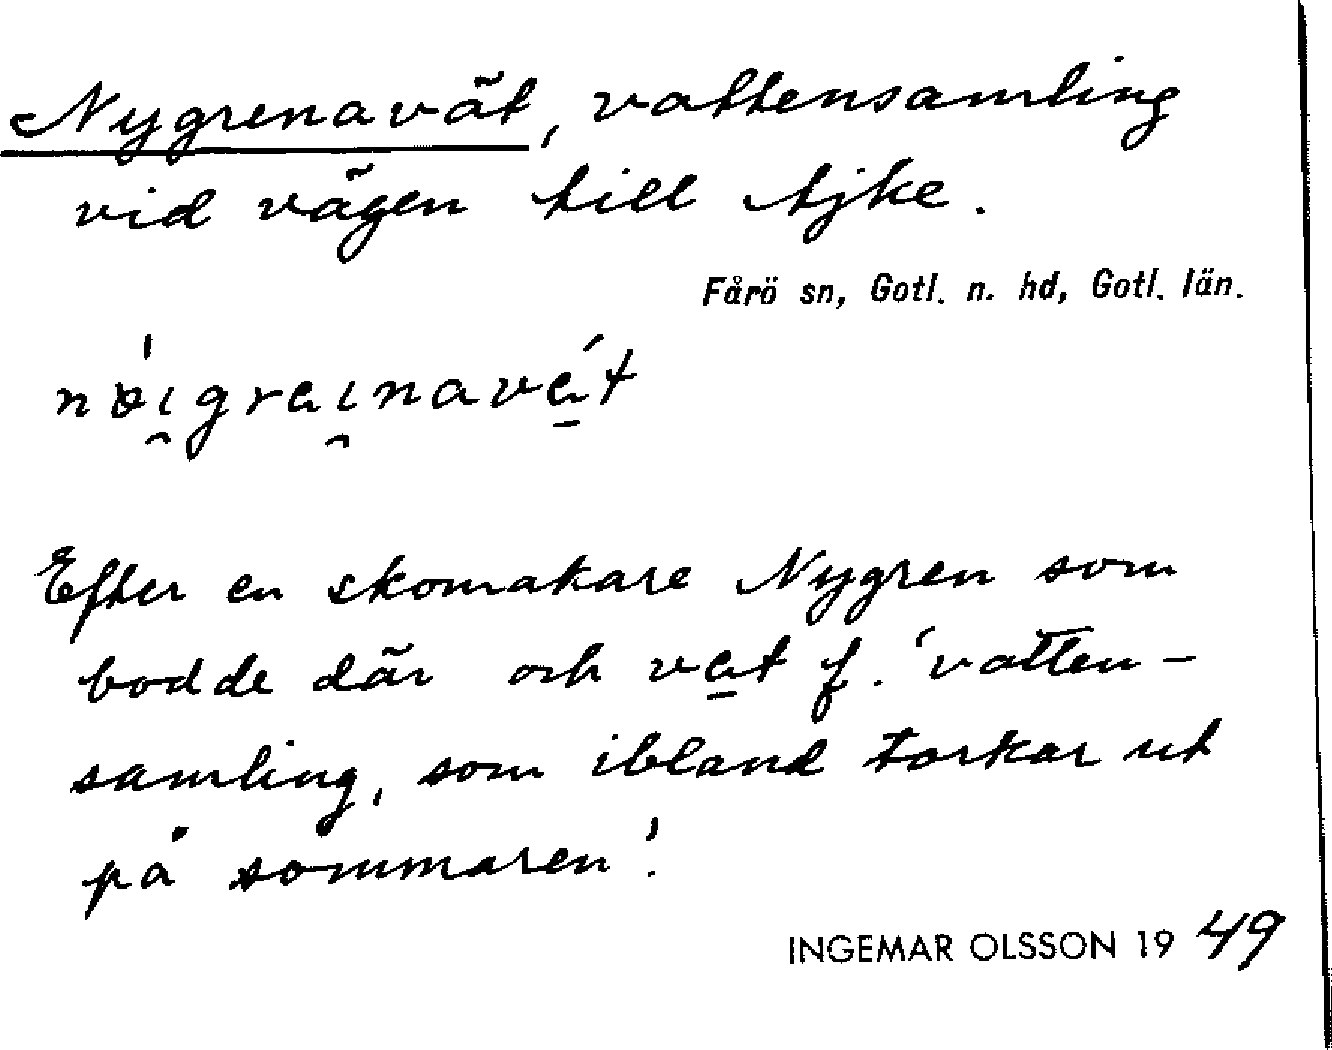 Nygrenavät, vattensamling
vid vägen till Ajke.
Fårö sn, Gotl. n. hd, Gotl. län.
Efter en skomakare Nygren som
bodde där och vät f. 'vatten-
samling, som ibland torkar ut
på sommaren'.
INGEMAR OLSSON 1949